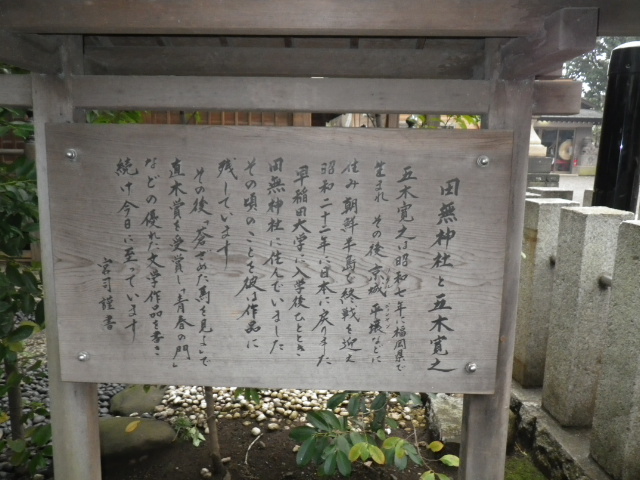 田無神社と五木寛之
五木寛之は昭和七年に福岡県で
生まれ その後京城 平壌などに
住み 朝鮮半島で終戦を迎え
昭和二十二年に日本に戻りました
早稲田大学に入学後ひととき
田無神社に住んでいました
その頃のことを彼は作品に
残しています
その後「蒼ざめた馬を見よ」で
直木賞を受賞し「青春の門」
などの優れた文学作品を書き
続け今日に至っています
宮司謹書